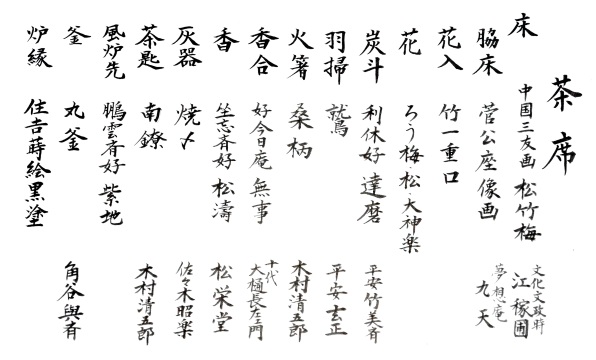 茶席
床 中国三友画 松竹梅 文化文政時 江稼圃
脇床 菅公座像画 夢想庵 九天
花入 竹一重口
花 ろう梅・松・大神楽
炭斗 利休好 達磨 平安竹美斉
羽掃 鷲 平安玄正
火箸 桑柄 木村清五郎
香合 好今日庵 無事 十代 大樋長左ェ門
香 坐忘斉好 松濤 松栄堂
灰器 焼〆 佐々木昭楽
茶匙 南鐐 木村清五郎
風炉先 鵬雲斉好 紫地
釜 丸釜 角谷與斉
炉縁 住吉蒔絵黒塗